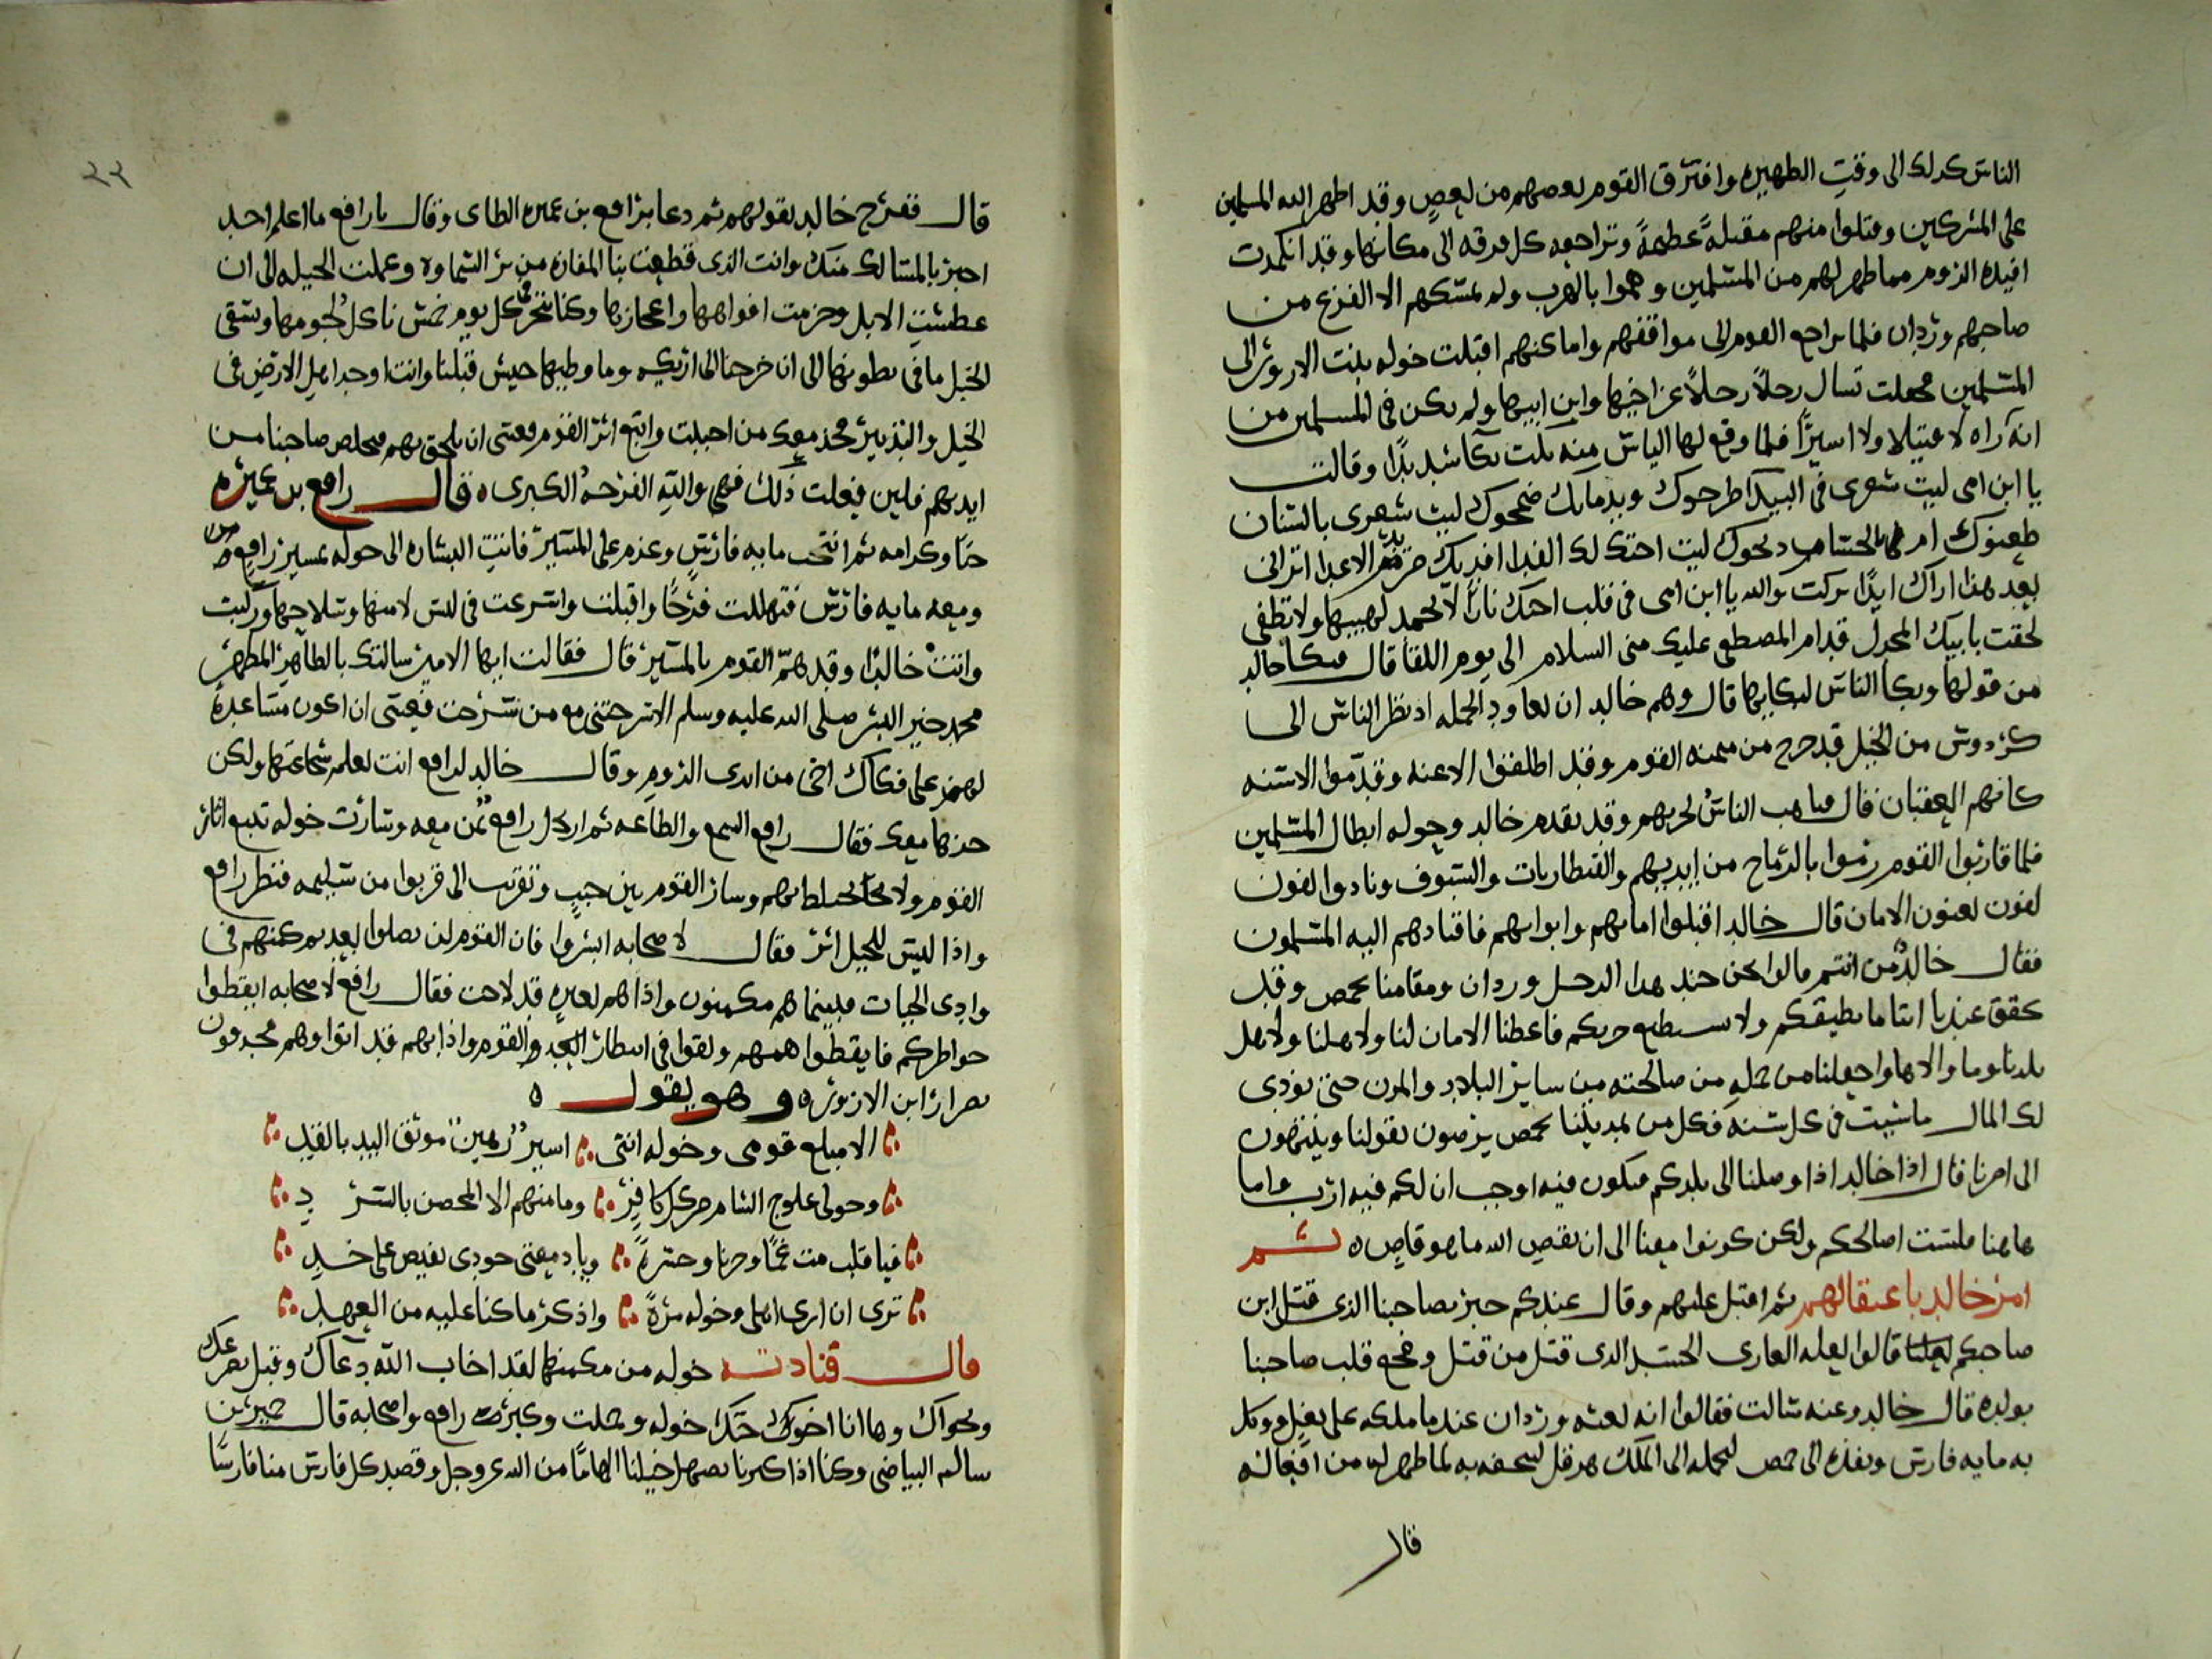 الناس كدلك الى وقت الظهيره وافترق القوم بعضهم من بعض وقد اظهر الله المسلمين
على المشركين وقتلوا منهم مقتلة عظيمة وتراجعه كل فرقه الى مكانها وقد انكمدت
افيده الروم مما ظهر لهم من المسلمين وهموا بالهرب ولم يمسكهم الا الفزع من
صاحبهم وردان فلما تراجع القوم الى مواقفهم واماكنهم اقبلت خوله بنت الازور الى
المسلمين فجعلت تسال رجلاً رجلاً عن اخيها وابن ابيها ولم يكن في المسلمين من
انه رآه لا قتيلا ولا اسيراً فلما وقع لها الياس منه بكت بكآ شديدًا وقالت
يا ابن امى ليت شعرى في البيدآ طرحوك وبدمايك ضمخوك ليت شعرى بالسنان
طعنوك ام بالحسام دبحوك ليت اختك لك الفدا افديك من الاعدا اترانى
بعد هذا اراك ابدًا تركت والله يا ابن امى فى قلب اختك نارًا لا تخمد لهيبها ولا تطفى
لحقت بابيك المجدل قدام المصطفى عليك منى السلام الى يوم اللقا قال فبكا خالد
من قولها وبكا الناس لبكايها قال وهم خالد ان يعاود الحمله اد نظر الناس الى
كردوس من الخيل قد خرج من ميمنه القوم وقد اطلقوا الاعنه وقدموا الاسنه
كانهم العقبان فقال فتاهب الناس لحربهم وقد تقدم خالد وحوله ابطال المسلمين
فلما قاربوا القوم رموا بالرماح من ايديهم والقنطاريات والسيوف ونادوا لفون
لفون يعنون الامان قال خالد اقبلوا امانهم وايوابهم فاقتادهم اليه المسلمون
فقال خالد من انتم قالوا نحن جند هدا الرجل وردان ومقامنا بحمص وقد
تحقق عندنا اننا ما نطيقكم ولا نستطيع حربكم فاعطنا الامان لنا ولاهلنا ولاهل
بلدنا وما والاها واجعلنا من جمله من صالحته من ساير البلاد والمدن حتى نودى
لك المال ما شيت فى كل سنه فكل من بمدينتنا بحمص يرضون بقولنا وينتهون
الى امرنا قال اذا خالد اذا وصلنا الى بلدكم فيكون فيه اوجب ان لكم فيه ارب واما
هاهنا فلست اصالحكم ولكن كونوا معنا الى ان يقضى الله ما هو قاض ثم
امر خالد باعتقالهم ثم اقبل عليهم وقال عندكم خبر بصاحبنا الذى قتل ابن
صاحبكم قالوا لعله العارى الجسد الدى قتل من قتل وفجع قلب صاحبنا
بولده قال خالد وعنه سالت فقالوا انه بعثه وردان عندما ملكه على بغل ووكل
به مايه فارس ونفذه الى حمص ليحمله الى الملك هرقل ليتحفه به لما ظهر له من افعاله
قال
٢٢
قال ففرح خالد بقولهم ثم دعا برافع بن عميره الطاى وقال يا رافع ما اعلم احد
اخبر بالمسالك منك وانت الذى قطعت بنا المفازه من بر السماوه وعملت الحيله الى ان
عطشت الابل وحزمت افواهها واعجازها وكنا ننحر كل يوم خمس ناكل لحومها ونسقى
الخيل ما فى بطونها الى ان خرجنا الى اركه وما وطيها جيش قبلنا وانت اوحد اهل الارض فى
الخيل والتدبير فخذ معك من احببت واتبع اثر القوم فعسى ان تلحق بهم فتخلص صاحبنا من
ايديهم فلين فعلت ذلك فهى والله الفرحه الكبرى قال رافع بن عميره
حبا وكرامه ثم انتخب مايه فارس وعزم على المسير فاتت البشاره الى خوله بمسير رافع
ومعه مايه فارس فتهللت فرحًا واقبلت واسرعت فى لبس لامتها وسلاحها وركبت
واتت خالدًا وقد هم القوم بالمسير قال فقالت ايها الامير سالتك بالطاهر المطهر
محمد خير البشر صلى الله عليه وسلم الا سرحتنى مع من سرحت فعسى ان اكون مساعدة
لهم على فكاك اخى من ايدى الروم وقال خالد لرافع انت تعلم شجاعتها ولكن
خذها معك فقال رافع السمع والطاعه ثم ارتحل رافع بمن معه وسارت خوله تتبع اثار
القوم ولا تختلط بهم وسار القوم بين جبب وتقرب الى قربوا من سليمه فنظر رافع
واذا ليس للخيل اثر فقال لاصحابه ابشروا فان القوم لن يصلوا بعد ثم كمنهم فى
وادى الحيات فبينما هم مكمنون واذا هم بغبره قد لاحت فقال رافع لاصحابه ايقظوا
خواطركم فايقظوا هممهم وبقوا فى انتظار القوم واذا بهم قد اتوا وهم محدقون
بضرار ابن الازور وهو يقول
الا مبلغ قومى وخوله اننى اسير رهين موثق اليد بالقيد
وحولى علوج الشام من كل كافر وما منهم الا المحصن بالسرد
فيا قلب مت غمًا وحزنا وحسرة ويا دمعتى جودى بفيض على خدى
ترى ان ارى اهلى وخوله مرة واذكر ما كنا عليه من العهد
قال فنادت خوله من مكمنها لقد اجاب الله دعاك وقبل تضرعك
ونجواك وها انا اخوك اختك خوله وحملت وكبرت رافع واصحابه قال حبر من
سالم البياضى وكنا اذا كبرنا تصهل خيلنا الهامًا من الله عز وجل وقصد كل فارس منا فارسًا